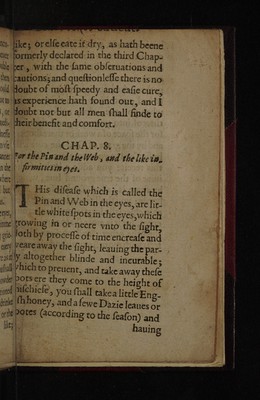 like; or else eate it dry, as hath beene
formerly declared in the third Chap-
ter, with the same obseruations and
cautions; and questionlesse there is no
doubt of most speedy and easie cure,
as experience hath found out, and I
doubt not but all men shall finde to
their benefit and comfort.
CHAP. 8.
For the Pin and the Web, and the like in-
firmities in eyes.
THis disease which is called the
Pin and Web in the eyes, are lit-
tle white spots in the eyes, which
growing in or neere vnto the sight,
doth by processe of time encrease and
weare away the sight, leauing the par-
ty altogether blinde and incurable;
which to preuent, and take away these
spots ere they come to the height of
mischiefe, you shall take a little Eng-
lish honey, and a fewe Dazie leaues or
rootes (according to the season) and
hauing